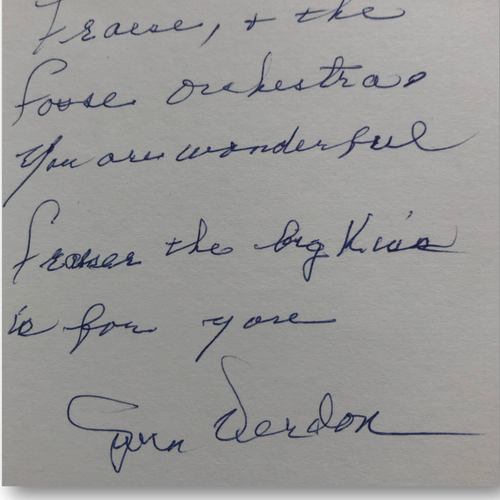 Fraser, & the
Fosse Orchestra.
You are wonderful
Fraser the big Kiss
is for you
Gwen Verdon